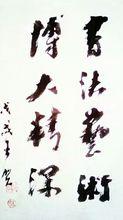 書法藝術
博大精深
戊戌